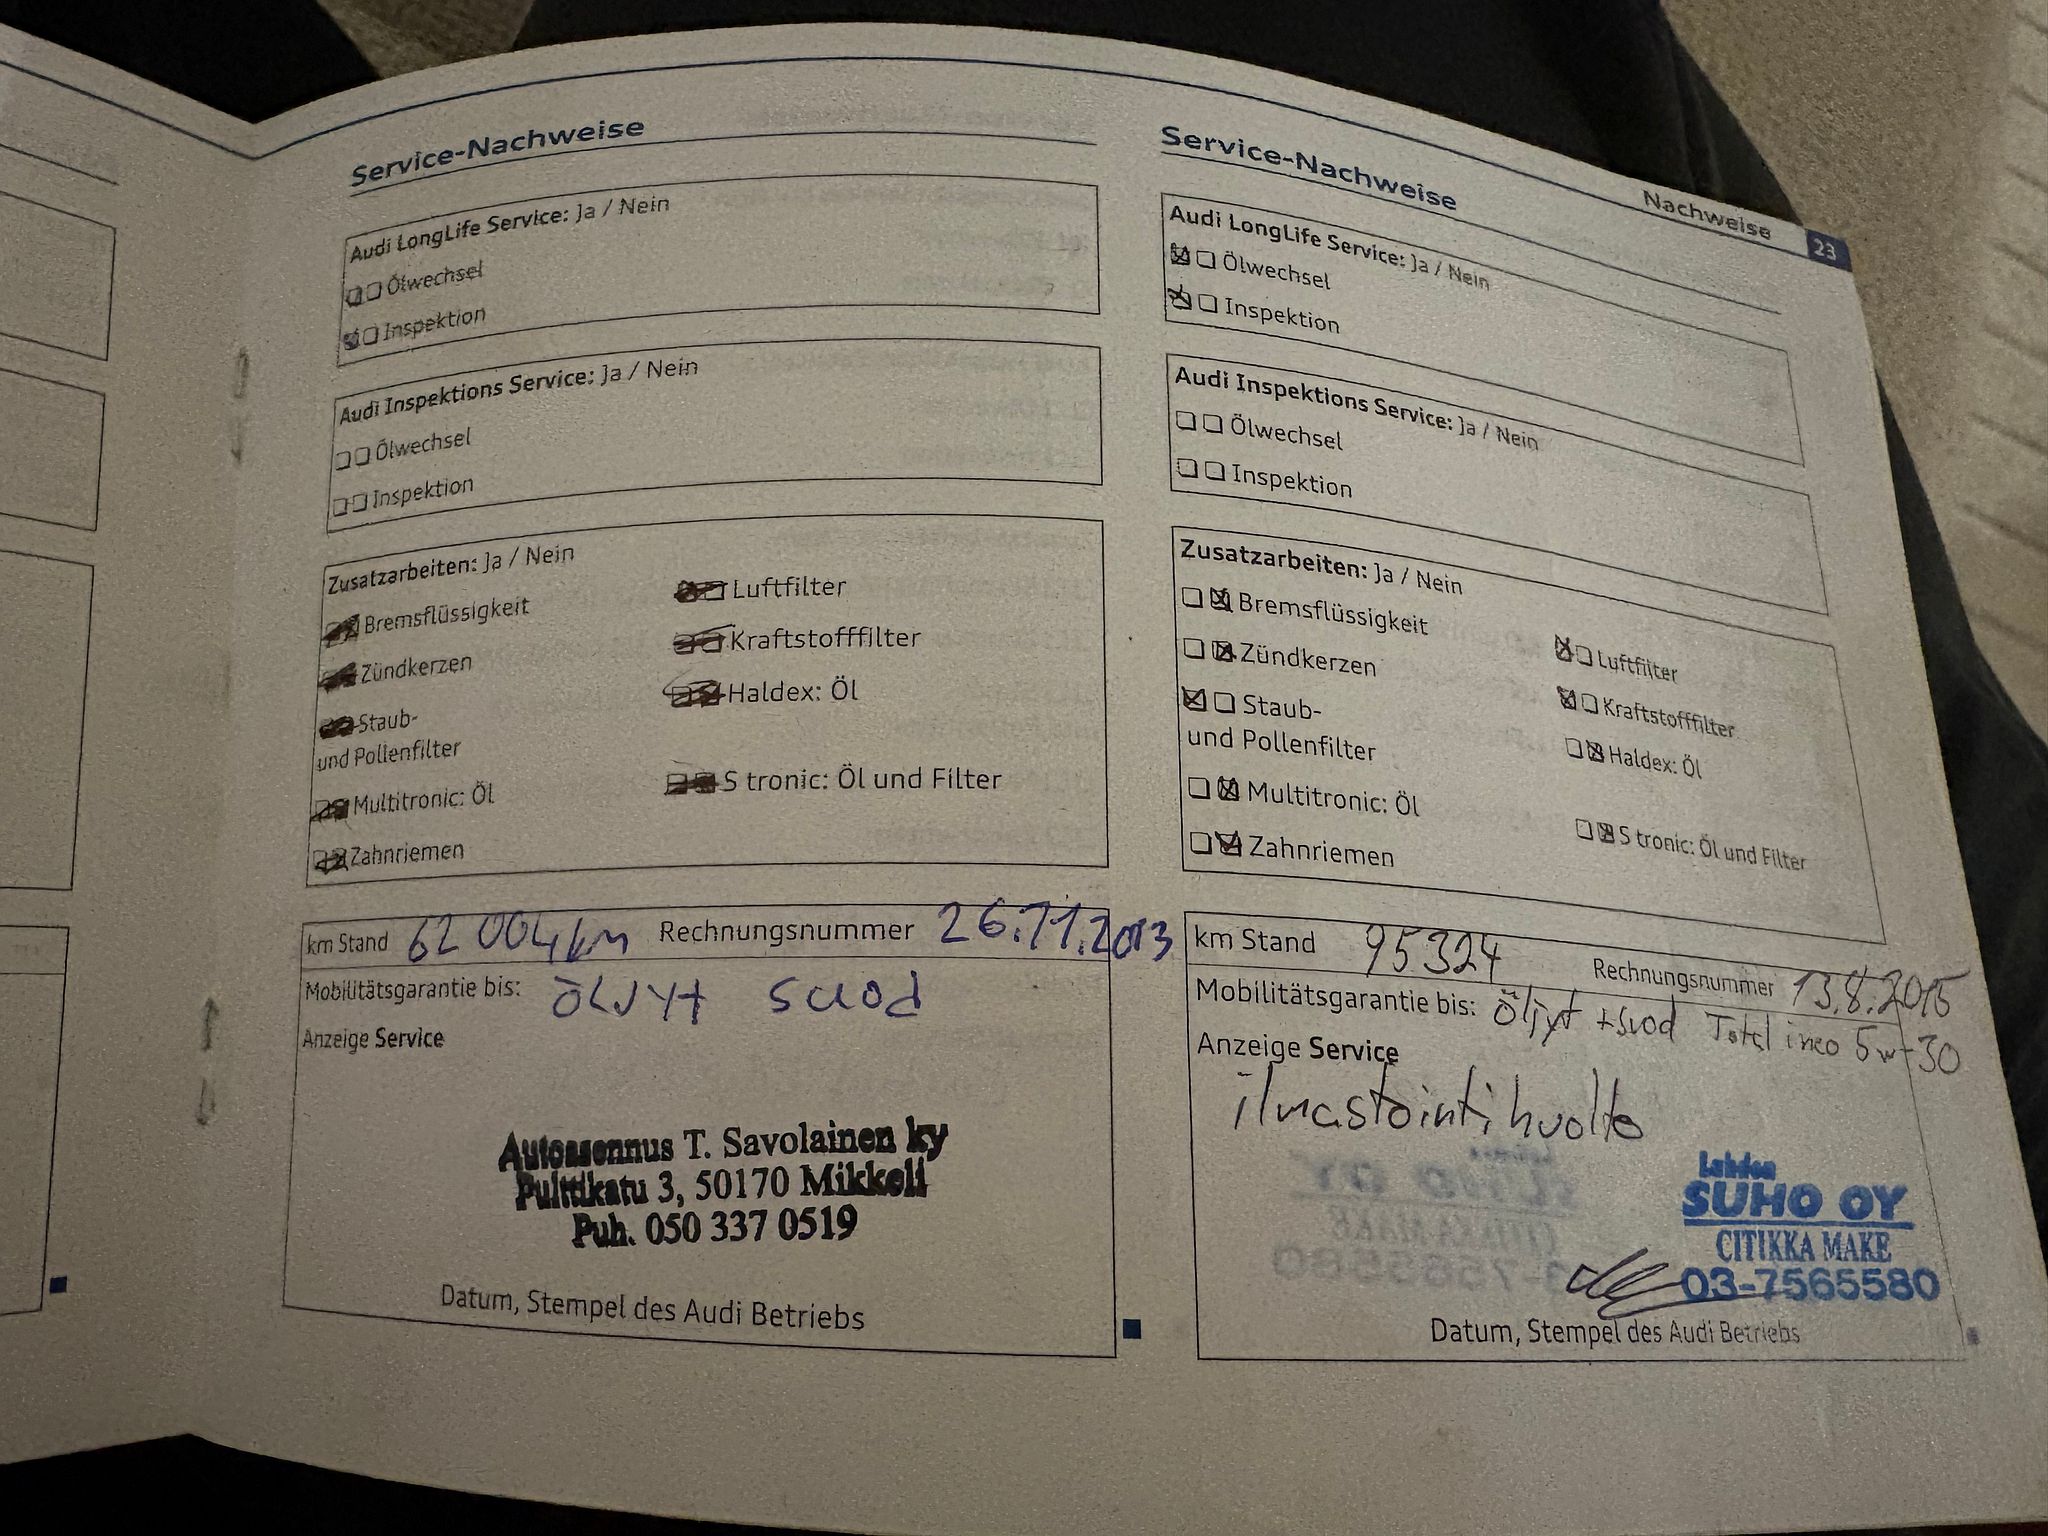 Service-Nachweise
Audi LongLife Service: Ja / Nein
Ölwechsel
Inspektion
Audi Inspektions Service: Ja / Nein
Ölwechsel
Inspektion
Zusatzarbeiten: Ja / Nein
Bremsflüssigkeit
Zündkerzen
Staub-
und Pollenfilter
Multitronic: Öl
Zahnriemen
Luftfilter
Kraftstofffilter
Haldex: Öl
S tronic: Öl und Filter
km Stand 62 004 km Rechnungsnummer 26.11.2013
Mobilitätsgarantie bis: öljyt suod
Anzeige Service
Autoasennus T. Savolainen ky
3, 50170 Mikkeli
Puh. 050 337 0519
Datum, Stempel des Audi Betriebs
Nachweise 23
Service-Nachweise
Audi LongLife Service: Ja / Nein
Ölwechsel
Inspektion
Audi Inspektions Service: Ja / Nein
Ölwechsel
Inspektion
Zusatzarbeiten: Ja / Nein
Bremsflüssigkeit
Zündkerzen
Staub-
und Pollenfilter
Multitronic: Öl
Zahnriemen
Luftfilter
Kraftstofffilter
Haldex: Öl
S tronic: Öl und Filter
km Stand 95324 Rechnungsnummer 13.8.2015
Mobilitätsgarantie bis: Öljyt +suod Total ineo 5w-30
Anzeige Service
ilmastointihuolto
Lahden
SUHO OY
CITIKKA MAKE
03-7565580
Datum, Stempel des Audi Betriebs